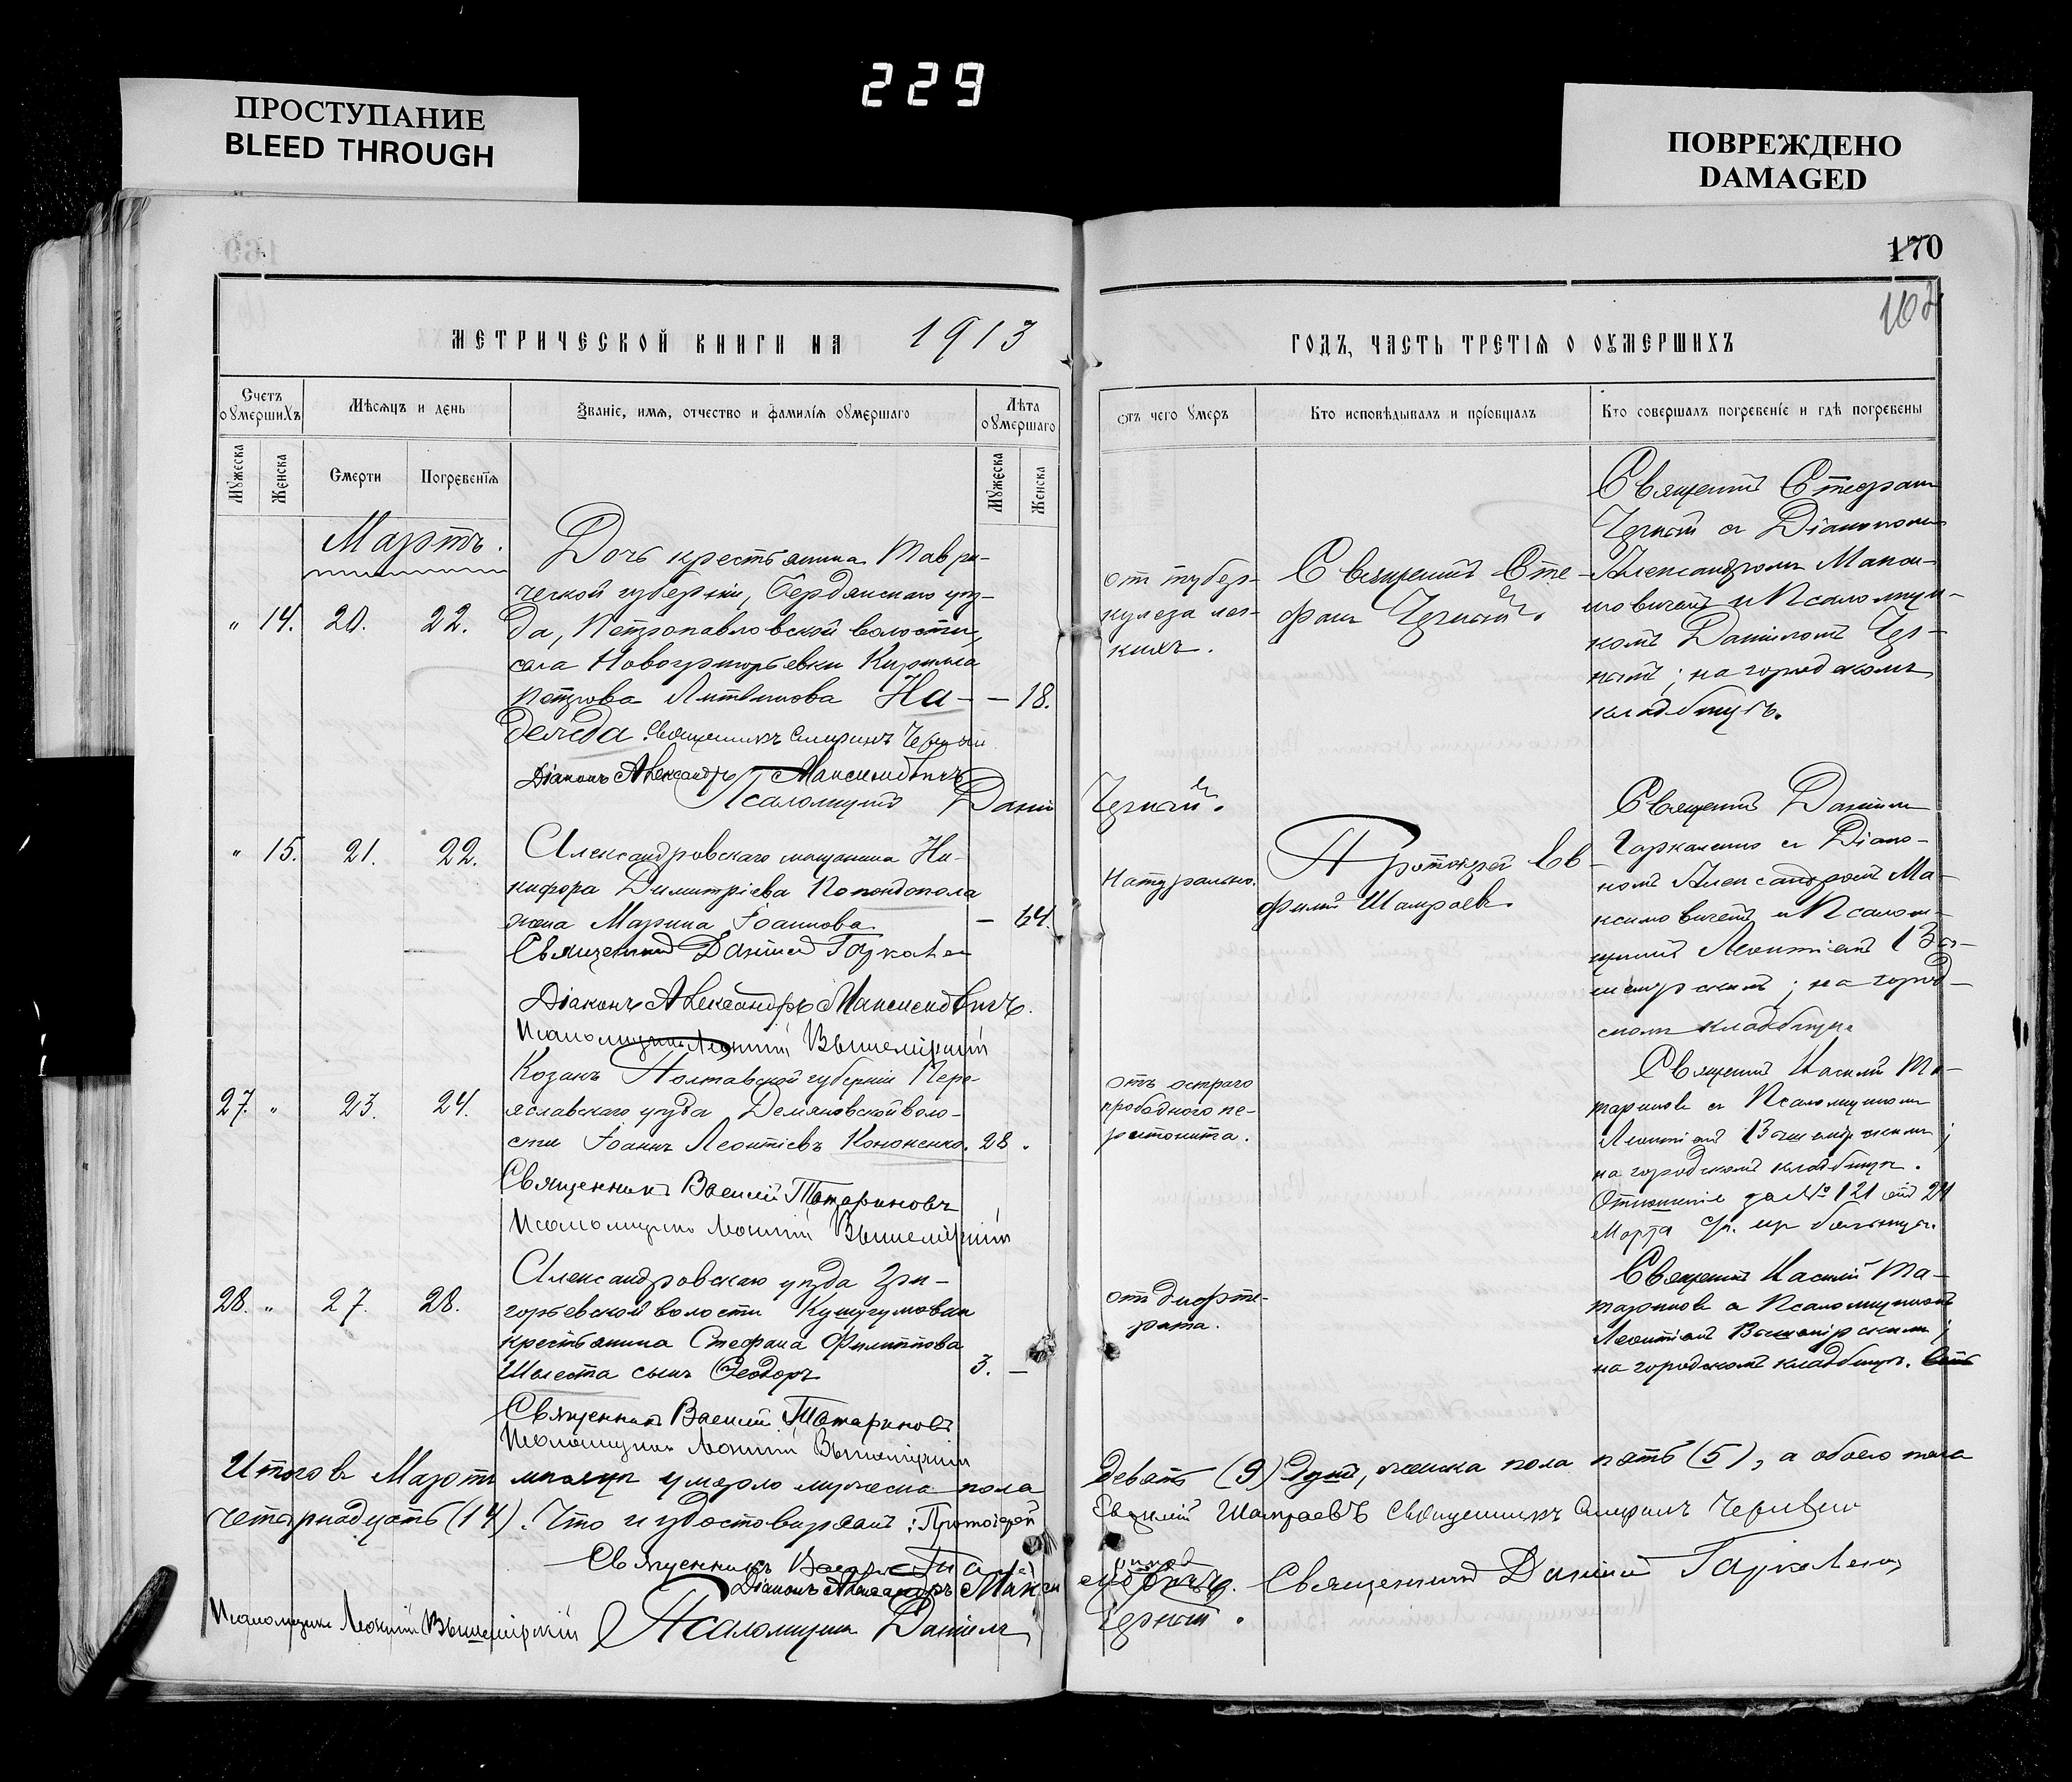 229
ПРОСТУПАНИЕ
BLEED THROUGH
ПОВРЕЖДЕНО
DAMAGED
170
102
МЕТРИЧЕСКОЙ КНИГИ НА 1913
ГОДЪ, ЧАСТЬ ТРЕТІЯ О ОУМЕРШИХЪ
Счетъ оумершихъ
Мѣсяцъ и день
Званіе, имя, отчество и фамилія оумершаго
Лѣта оумершаго
Отъ чего умеръ
Кто исповѣдывалъ и пріобщалъ
Кто совершалъ погребеніе и гдѣ погребены
Мужеска
Женска
Смерти
Погребенія
Мужеска
Женска
Мартъ.
" 14. 20. 22.
Дочь крестьянина Таври-
ческой губерніи, Бердянскаго уѣз-
да, Петропавловской волости,
села Новогригорьевки Кирилла
Петрова Литвинова На- — 18.
дежда. Священникъ Стефанъ Черный
Діаконъ Александръ Максимовичъ
Псаломщикъ Даніилъ
Черный.
от тубер-
кулеза лег-
кихъ.
Священникъ Сте-
фанъ Черный.
Священникъ Стефанъ
Черный съ Діакономъ
Александромъ Макси-
мовичемъ и Псаломщи-
комъ Даніиломъ Чер-
нымъ; на городскомъ
кладбищѣ.
" 15. 21. 22.
Александровскаго мѣщанина Ни-
кифора Димитріева Попондопола
жена Марина Іоаннова. — 64.
Священникъ Даніилъ Гаркавен
Діаконъ Александръ Максимовичъ.
Псаломщикъ Леонтій Вышемірскій
Натурально.
Протоіерей Ев-
фимій Шамраевъ.
Священникъ Даніилъ
съ Діако-
номъ Александромъ Ма-
ксимовичемъ и Псалом-
щикомъ Леонтіемъ Вы-
шемірскимъ; на город-
скомъ кладбищѣ.
27. " 23. 24.
Козакъ Полтавской губерніи Пере-
яславскаго уѣзда Демяновской воло-
сти Іоаннъ Леонтіевъ Кононенко. 28.
Священникъ Василій Татариновъ
Псаломщикъ Леонтій Вышемірскій
отъ остраго
прободного пе-
ритонита.
Священникъ Василій Та-
тариновъ съ Псаломщикомъ
Леонтіемъ Вышемірскимъ;
на городскомъ кладбищѣ.
Отношеніе за № 121 отъ 24
Марта больницы.
28. " 27. 28.
Александровскаго уѣзда Гри-
горьевской волости Кушугумовки
крестьянина Стефана Филиппова
Шыеста сынъ Ѳеодоръ 3. —
Священникъ Василій Татариновъ
Псаломщикъ Леонтій Вышемірскій
отъ дифте-
рита.
Священникъ Василій Та-
тариновъ съ Псаломщикомъ
Леонтіемъ Вышемірскимъ;
на городскомъ кладбищѣ.
Итого въ Мартѣ мѣсяцѣ умерло мужеска пола девять (9) душъ, женска пола пять (5), а обоего пола
четырнадцать (14). Что и удостовѣряемъ: Протоіерей Евфимій Шамраевъ Священникъ Стефанъ Черный
Священникъ Василій Татариновъ
Діаконъ Александръ Максимовичъ. Священникъ Даніилъ
Псаломщикъ Леонтій Вышемірскій Псаломщикъ Даніилъ Черный.